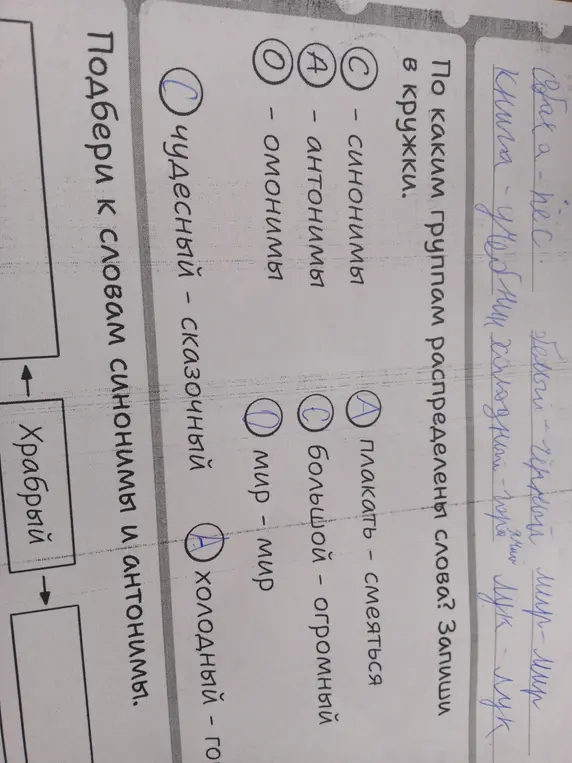 собака - пёс. белый - чёрный мир - мир
книга - учебник холодный - горячий лук - лук
По каким группам распределены слова? Запиши
в кружки.
С - синонимы А плакать - смеяться
А - антонимы С большой - огромный
О - омонимы О мир - мир
С чудесный - сказочный А холодный - го
Подбери к словам синонимы и антонимы.
Храбрый